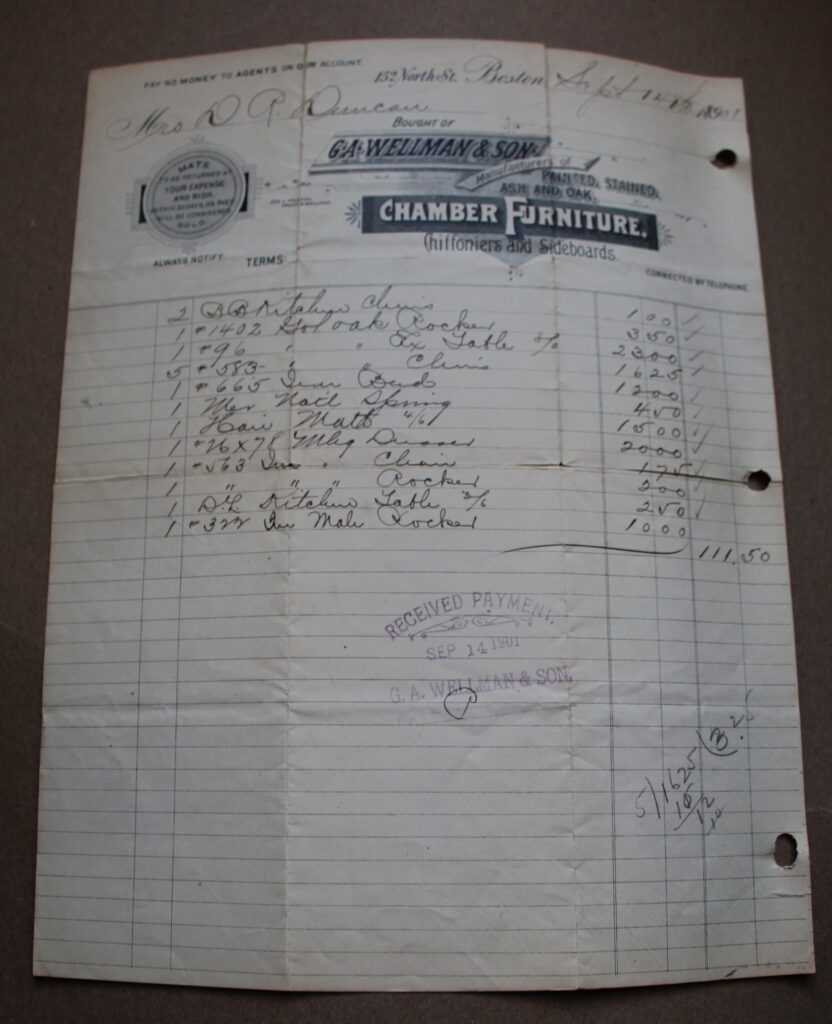 PAY NO MONEY TO AGENTS ON OUR ACCOUNT.
152 North St. Boston, Sept 14th 1901
Mrs D R Duncan
BOUGHT OF
G.A. WELLMAN & SON,
Manufacturers of
PAINTED, STAINED,
ASH AND OAK
CHAMBER FURNITURE,
Chiffoniers and Sideboards.
MATS
TO BE RETURNED AT
YOUR EXPENSE
AND RISK.
WILL BE CONSIDERED
SOLD
ALWAYS NOTIFY.
TERMS
CONNECTED BY TELEPHONE
2 Kitchen 1 00
1 #1402 Gol oak Rocker 3 50
1 #96 " " Ex Table 23 00
5 #583 " " 16 25
1 #665 12 00
1 Spring 4 50
1 Hair Matt 4/6 15 00
1 #26X78 Mhg 20 00
1 #563 " Chair 1 75
1 " " Rocker 2 00
1 Kitchen Table 2 50
1 #322 Rocker 10 00
111.50
RECEIVED PAYMENT,
SEP 14 1901
G. A. WELLMAN & SON,
5)1625(3 25
15
12
10